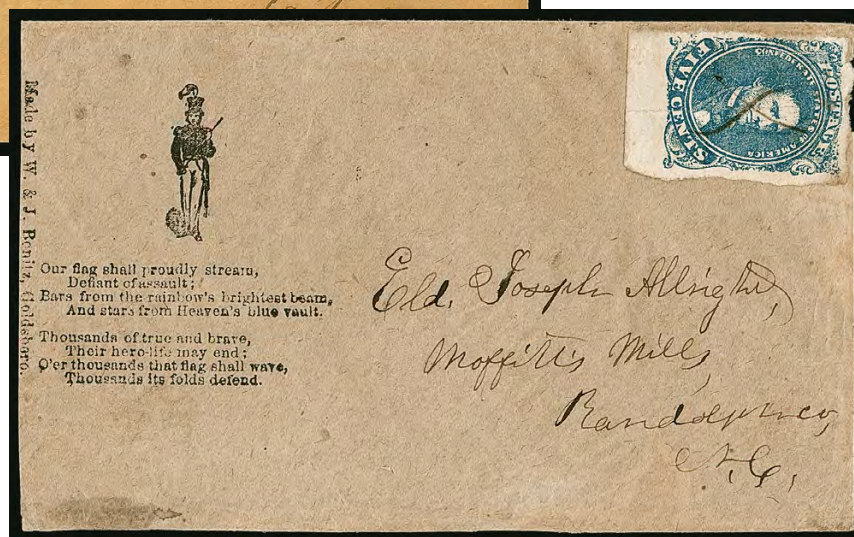 Made by W. & J. Bonitz, Goldsboro.
Our flag shall proudly stream,
Defiant of assault;
Bars from the rainbow's brightest beam,
And stars from Heaven's blue vault.
Thousands of true and brave,
Their hero-life may end;
O'er thousands that flag shall wave,
Thousands its folds defend.
POSTAGE
CONFEDERATE STATES
AMERICA
FIVE CENTS
Eld. Joseph Allright,
Moffitt's Mills,
Randolph co,
N.C.